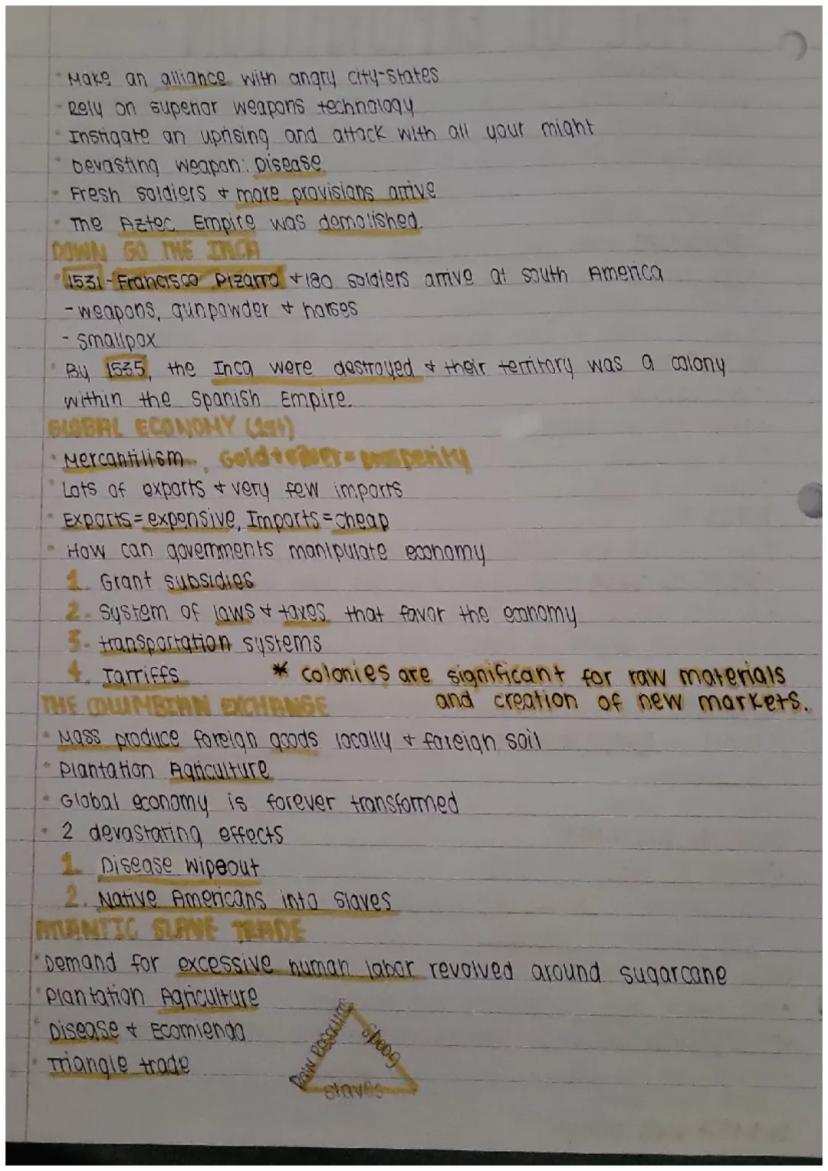 • Make an alliance with angry city-states
• Rely on superior weapons technology
• Instigate an uprising and attack with all your might
• Devasting weapon: Disease
• Fresh soldiers + more provisions arrive
• The Aztec Empire was demolished.
DOWN GO THE INCA
• 1531 - Francisco Pizarro + 180 soldiers arrive at south America
- weapons, gunpowder + horses
- smallpox
• By 1535, the Inca were destroyed + their territory was a colony
within the Spanish Empire.
GLOBAL ECONOMY (1st)
• Mercantilism, Gold + silver = prosperity
• Lots of exports + very few imports
• Exports = expensive, Imports = cheap
• How can governments manipulate economy
1. Grant subsidies
2. System of laws + taxes that favor the economy
3. transportation systems
4. Tarriffs * colonies are significant for raw materials
and creation of new markets.
THE COLUMBIAN EXCHANGE
• Mass produce foreign goods locally + foreign soil
• Plantation Agriculture
• Global economy is forever transformed
• 2 devastaring effects
1. Disease wipeout
2. Native Americans into slaves
ATLANTIC SLAVE TRADE
• Demand for excessive human labor revolved around sugarcane
• Plantation Agriculture
• Disease + Ecomienda
• Triangle trade
Raw Resources
Goods
slaves